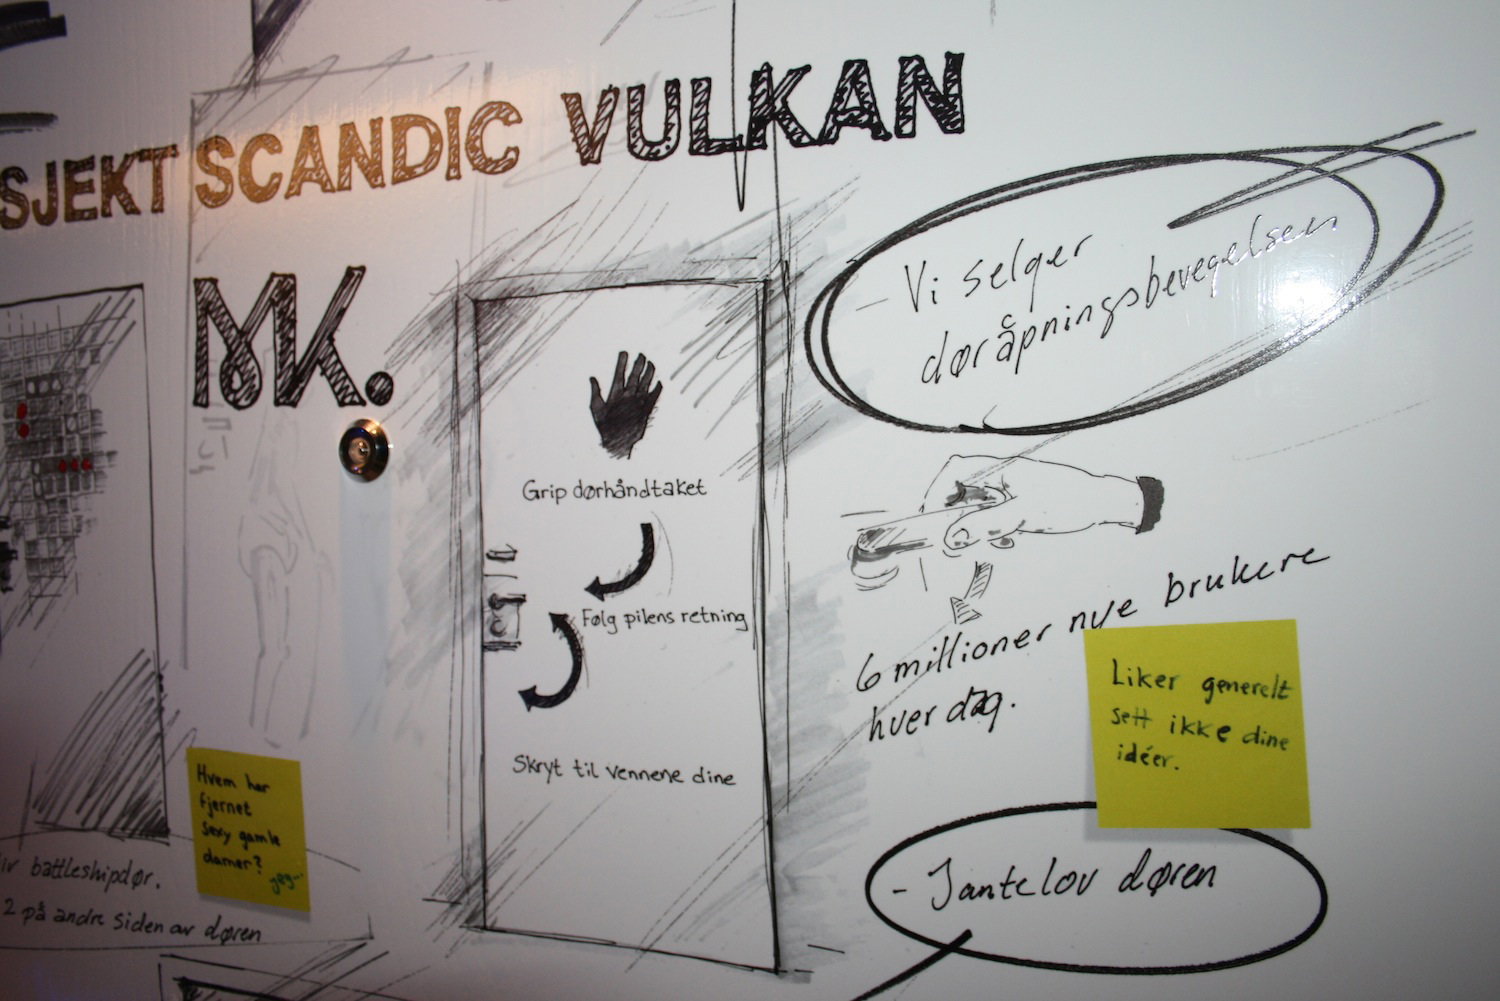 SJEKT SCANDIC VULKAN
MK.
Vi selger
døråpningsbevegelsen
Grip dørhåndtaket
Følg pilens retning
Skryt til vennene dine
6 millioner nye brukere
hver dag.
Liker generelt
sett ikke dine
idéer.
- Jantelov døren
Hvem har
fjernet
sexy gamle
damer?
iv battleshipdør.
2 på andre siden av døren